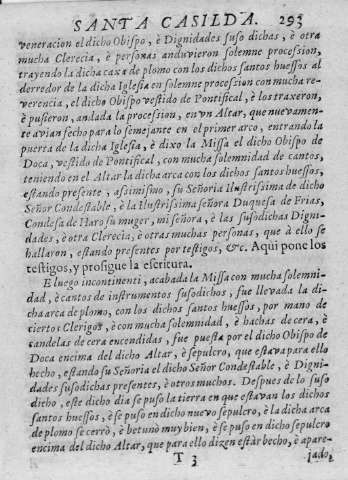 SANTA CASILDA. 293
veneracion el dicho Obispo, è Dignidades suso dichas, è otra
mucha Clerecia, è personas anduvieron solemne procession,
trayendo la dicha caxa de plomo con los dichos santos huessos al
derredor de la dicha Iglesia en solemne procession con mucha re-
verencia, el dicho Obispo vestido de Pontifical, è los traxeron,
è pusieron, andada la procession, en vn Altar, que nuevamen-
te avian fecho para lo semejante en el primer arco, entrando la
puerta de la dicha Iglesia, è dixo la Missa el dicho Obispo de
Doca, vestido de Pontifical, con mucha solemnidad de cantos,
teniendo en el Altar la dicha arca con los dichos santos huessos,
estando presente, assimismo, su Señoria Ilustrissima de dicho
Señor Condestable, è la Ilustrissima señora Duquesa de Frias,
Condesa de Haro su muger, mi señora, è las susodichas Digni-
dades, è otra Clerecia, è otras muchas personas, que à ello se
hallaron, estando presentes por testigos, &c. Aqui pone los
testigos, y prosigue la escritura.
E luego incontinenti, acabada la Missa con mucha solemni-
dad, è cantos de instrumentos susodichos, fue llevada la di-
cha arca de plomo, con los dichos santos huessos, por mano de
ciertos Clerigos, è con mucha solemnidad, è hachas de cera, è
candelas de cera encendidas, fue puesta por el dicho Obispo de
Doca encima del dicho Altar, è sepulcro, que estava para ello
hecho, estando su Señoria el dicho Señor Condestable, è Digni-
dades susodichas presentes, è otros muchos. Despues de lo suso
dicho, este dicho dia se puso la tierra en que estavan los dichos
santos huessos, è se puso en dicho nuevo sepulcro, è la dicha arca
de plomo se cerrò, è betunò muy bien, è se puso en dicho sepulcro
encima del dicho Altar, que para ello dizen estàr becho, è apare-
T 3 jado,